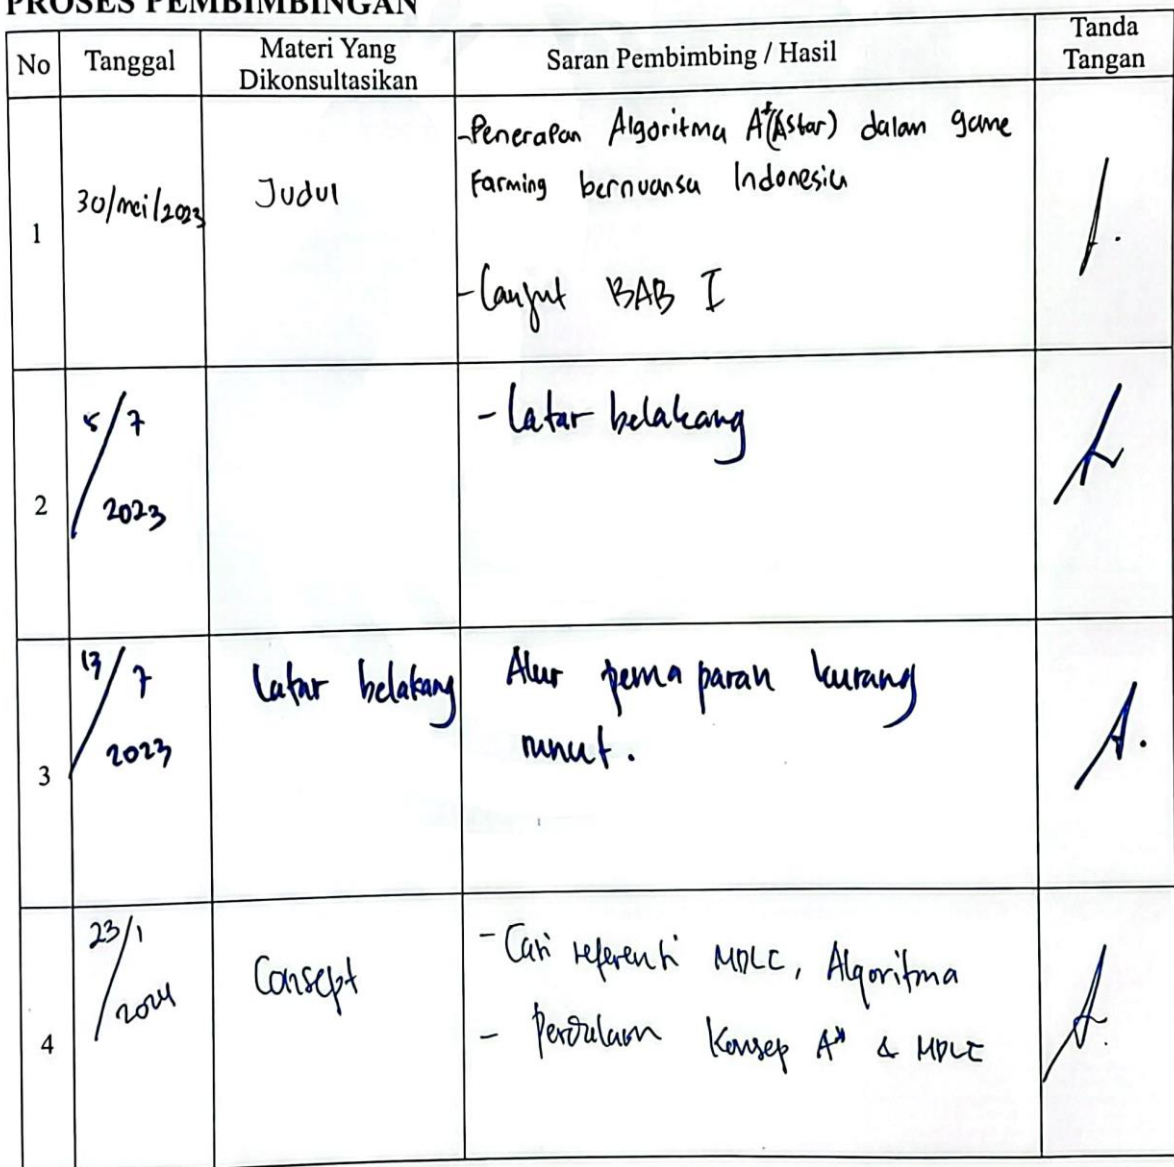 PROSES PEMBIMBINGAN
No
Tanggal
Materi Yang
Dikonsultasikan
Saran Pembimbing / Hasil
Tanda
Tangan
1
30/mei/2023
Judul
-Penerapan Algoritma A*(Astar) dalam game
Farming bernuansa Indonesia
-Lanjut BAB I
2
5/7
2023
- Latar belakang
3
13/7
2023
Latar belakang
Alur pemaparan kurang
runut.
4
23/1
2024
Consept
- Cari referensi MDLC, Algoritma
- Perdalam Konsep A* & MDLC